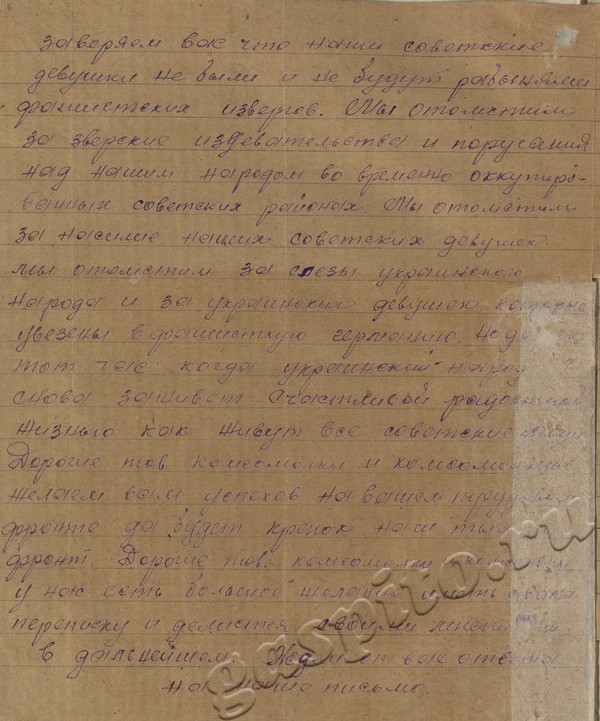 заверяем вас что наши советские
девушки не были и не будут рабынями
фашистских извергов. Мы отомстим
за зверские издевательства и поругания
над нашим народом во временно оккупиро-
ванных советских районах. Мы отомстим
за насилие наших советских девушек
мы отомстим за слезы украинского
народа и за украинских девушек которые
увезены в фашисткую германию.
тот час когда украинский народ
снова заживет счастливой радостной
жизнью как живут все советские люди
Дорогие тов. комсомолки и комсомольцы
желаем вам успехов на вашем трудовом
фронте да будет крепок наш тыл
фронт. Дорогие тов. комсомолки
у нас есть большое желание иметь с вами
переписку и делится своими
в дальнейшем. Ждем от вас ответа
на наше письмо.
gaspito.ru